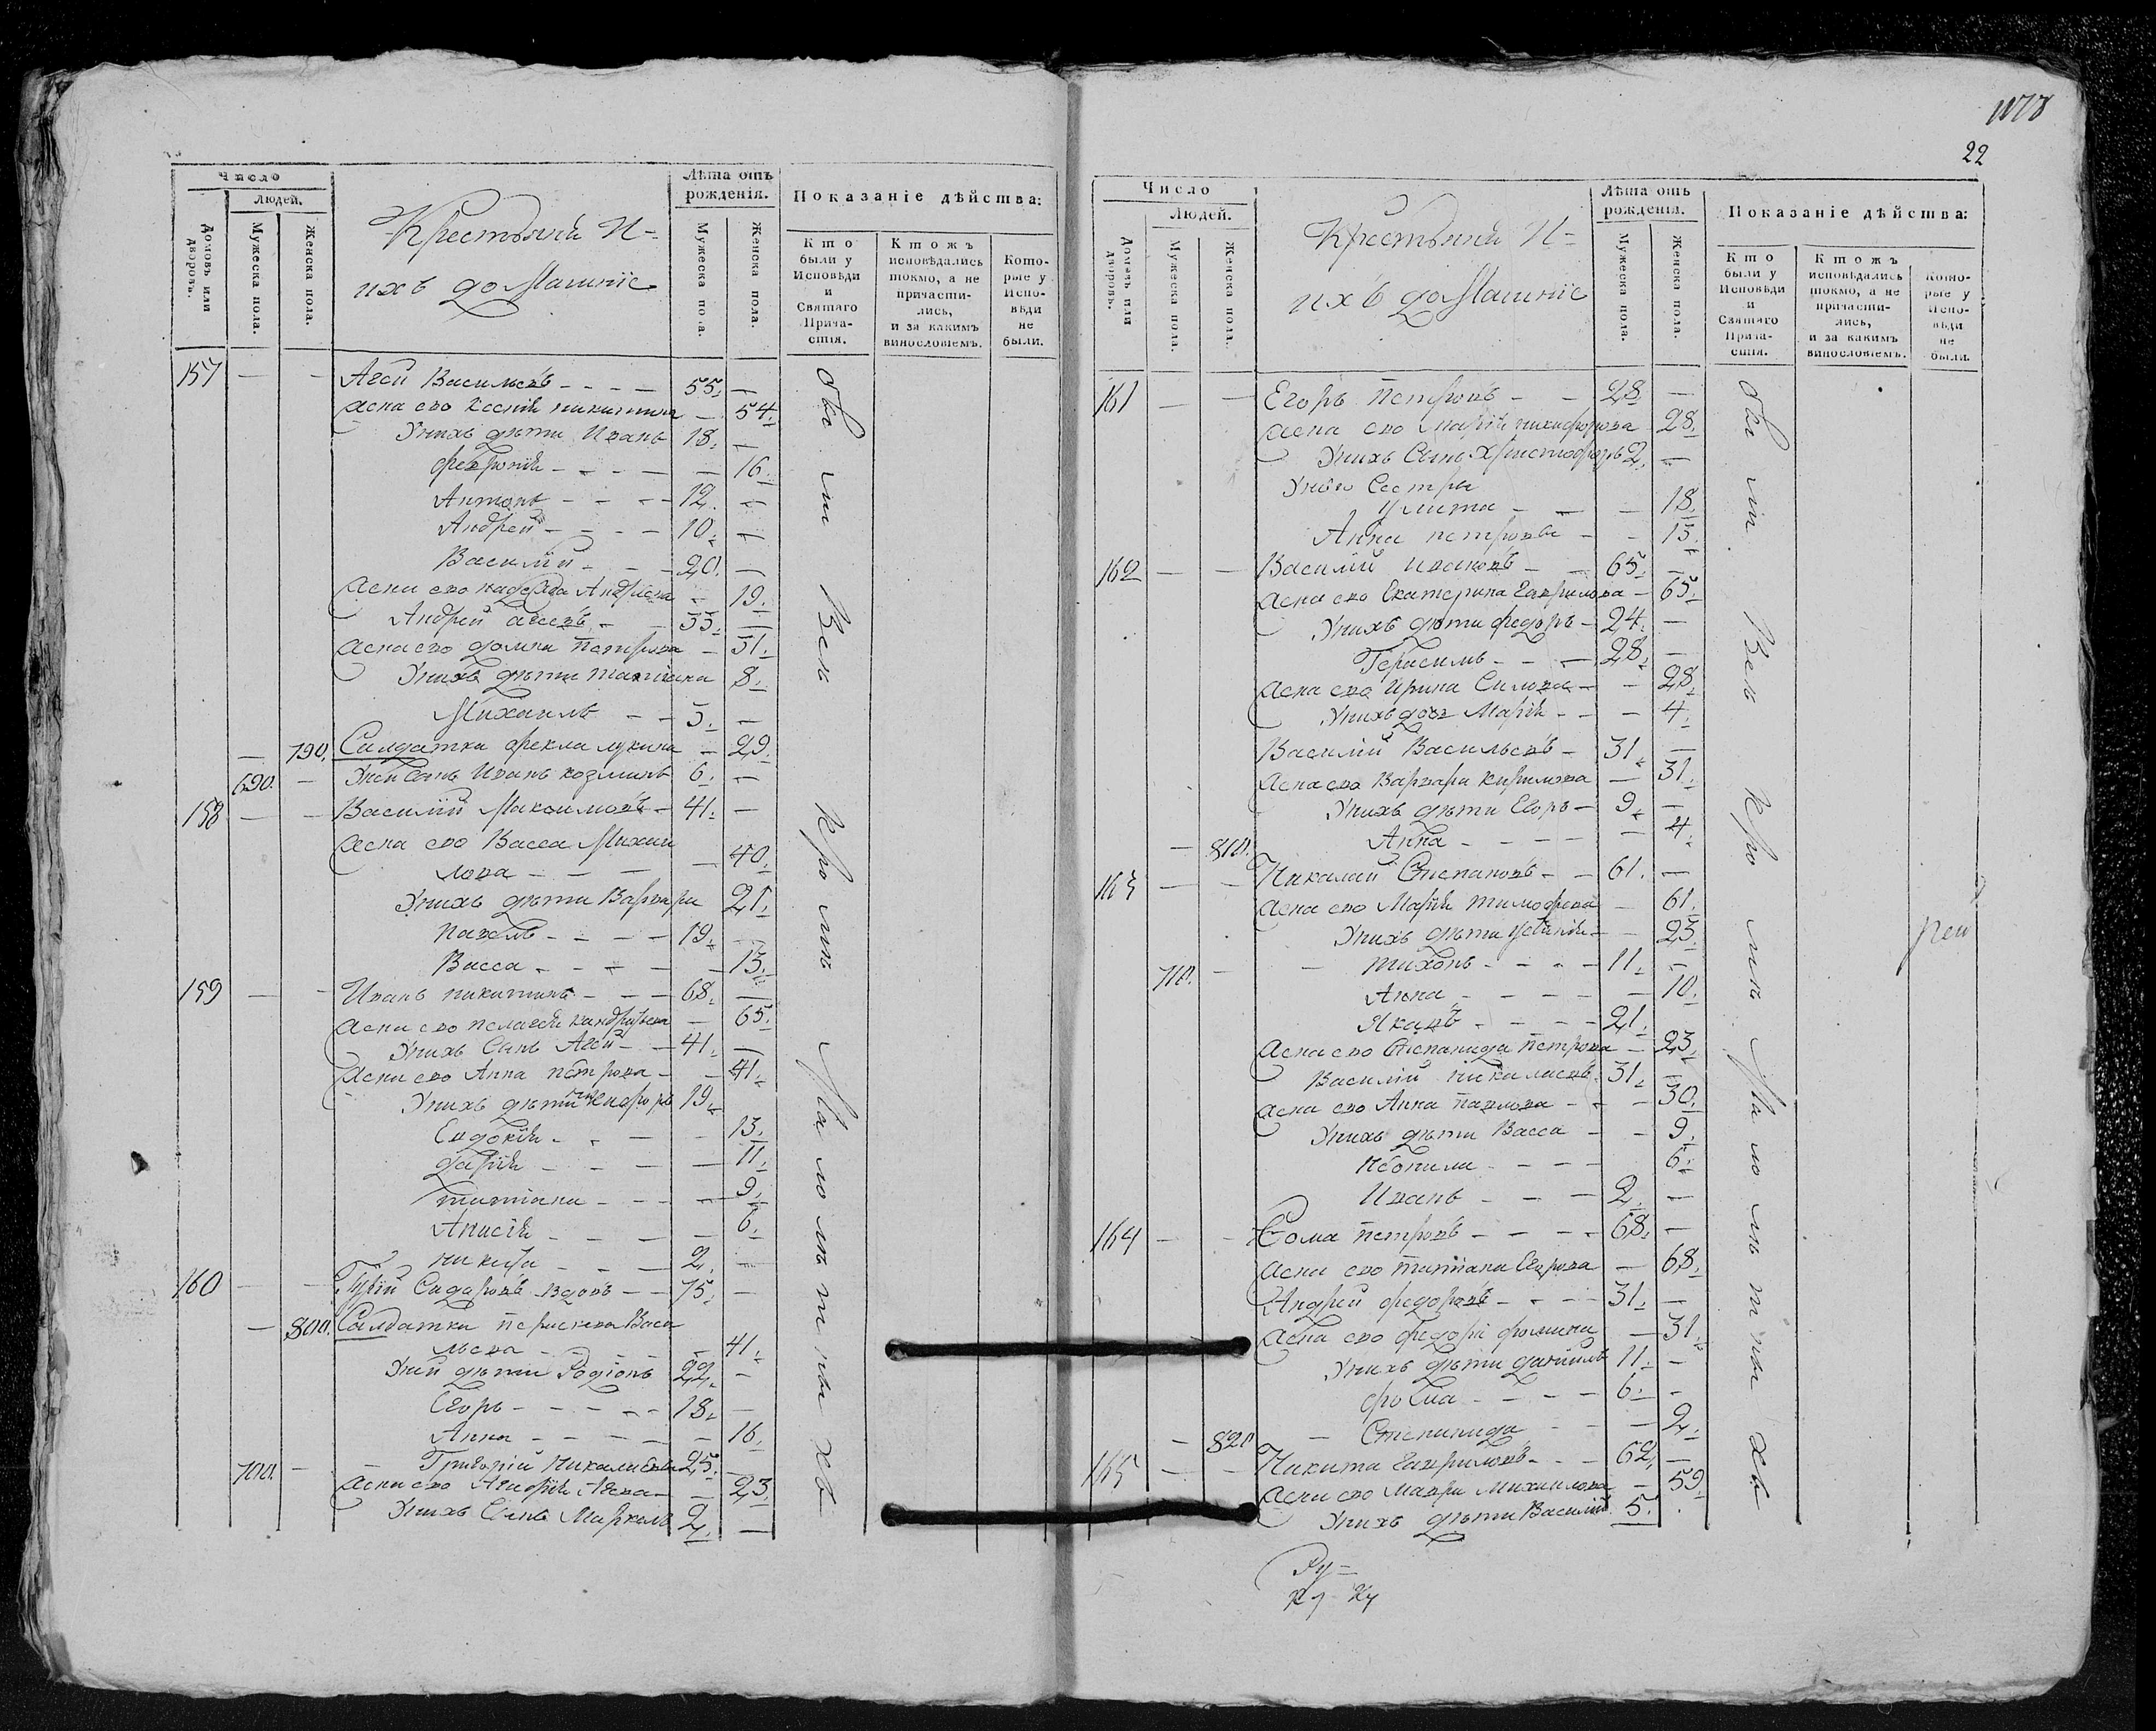 Число
Людей.
Домовъ или дворовъ.
Мужеска пола.
Женска пола.
Крестьяня И-
ихъ домашніе
Лѣта отъ рожденія.
Мужеска пола.
Женска пола.
Показаніе дѣйства:
Кто были у Исповѣди и Святаго Прича-стія.
Ктожъ исповѣдались токмо, а не причасти-лись, и за какимъ винословіемъ.
Кото-рые у Испо-вѣди не были.
157 — — Агей Васильевъ - - - - 55. —
Жена ево Ксенія никитина — 54.
Унихъ дѣти Иванъ 18. —
феѵронія - - - - — 16.
Антонъ - - - - 12. —
Андрей - - - - 10. —
Василій - - - 20. —
Жена ево надежда Андреева — 19.
Андрей агеевъ - - 33. —
Жена ево домна петрова — 31.
Унихъ дѣти татіана 8.
Михаилъ - - 3. —
— 790. Салдатка фекла лукина — 29.
690. — Уней сынъ Иванъ козминъ 6. —
158 — — Василій Максимовъ - 41. —
Жена ево Васса Михаи
лова - - - — 40.
Унихъ дѣти Варвара 21.
павелъ - - - - 19. —
Васса - - - - — 13.
159 — — Иванъ никитинъ - - - 68. —
Жена ево пелагея кандратьева — 65.
Унихъ Сынъ Агей - - 41. —
Жена ево Анна петрова - — 41.
Унихъ дѣти никифоръ 19.
Евдокія - - - — 13.
дарія - - - — 11.
татіана - - - — 9.
Анисія - - - — 6.
никита - - - 2. —
160 — — Гурій Сидоровъ вдовъ - - 75. —
— 800. Салдатка параскева Васи
льева - - - - — 41.
Уней дѣти Родіонъ 22. —
Егоръ - - - - 18. —
Анна - - - - — 16.
700. — Григорій Николаевъ 25. —
Жена ево Агафія Агева - — 23.
Унихъ Сынъ Маркелъ 2. —
обы ли Всѣ Кромѣ Малолѣтныхъ
22
Число
Людей.
Домовъ или дворовъ.
Мужеска пола.
Женска пола.
Крестьяня И-
ихъ домашніе
Лѣта отъ рожденія.
Мужеска пола.
Женска пола.
Показаніе дѣйства:
Кто были у Исповѣди и Святаго Прича-стія.
Ктожъ исповѣдались токмо, а не причасти-лись, и за какимъ винословіемъ.
Кото-рые у Испо-вѣди не были.
161 — — Егоръ петровъ - - 28. —
Жена ево Марія никифорова 28.
Унихъ Сынъ Христофоръ 2. —
Унево Сестры
улита - - — 18.
Анна петровы - — 15.
162 — — Василій ивановъ - - 65. —
Жена ево Екатерина Гаврилова - 65.
Унихъ дѣти федоръ - 24. —
Герасимъ - - - 28. —
Жена ево Ирина Силова - — 28.
Унихъ дочь Марія - - — 4.
Василій Васильевъ - 31. —
Жена ево Варвара кирилова — 31.
Унихъ дѣти Егоръ - 9. —
— 810. Анна - - - - — 4.
163 — — Николай Степановъ - - 61. —
Жена ево Марія тимофева — 61.
Унихъ дѣти устинія - — 23.
710. — тихонъ - - - - 11. —
Анна - - - - — 10.
Яковъ - - - - 21.
Жена ево Степанида петрова — 23.
Василій николаевъ 31. —
Жена ево Анна павлова - - — 30.
Унихъ дѣти Васса - — 9.
Неонила - - - - 6.
Иванъ - - - 2. —
164 — — Фома петровъ - - - - 68. —
Жена ево татіана Егорова — 68.
Андрей федоровъ - - - - 31. —
Жена ево федора фомина — 31.
Унихъ дѣти даниилъ 11. —
фотиа - - - - 6. —
— 820. Степанида - - — 2.
165 — — Никита Гавриловъ - - 62. —
Жена ево Мавра Михаилова — 59.
Унихъ дѣти Василій 5.
обы ли Всѣ Кромѣ Малолѣтныхъ